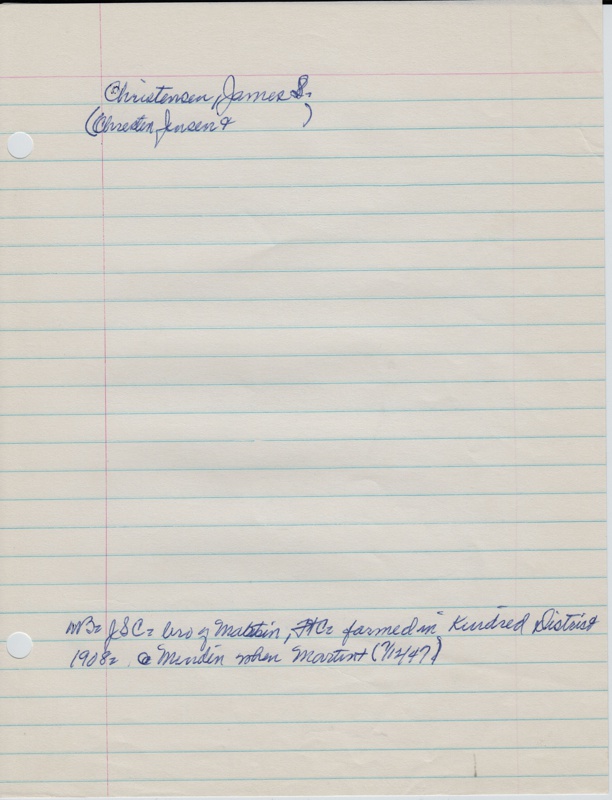 Christensen, James S.
(Chresten Jensen & )
NB= JSC= bro of Martin, JSC= farmed in Kindred District
1908= @ Minden when Martin + (7/12/47)